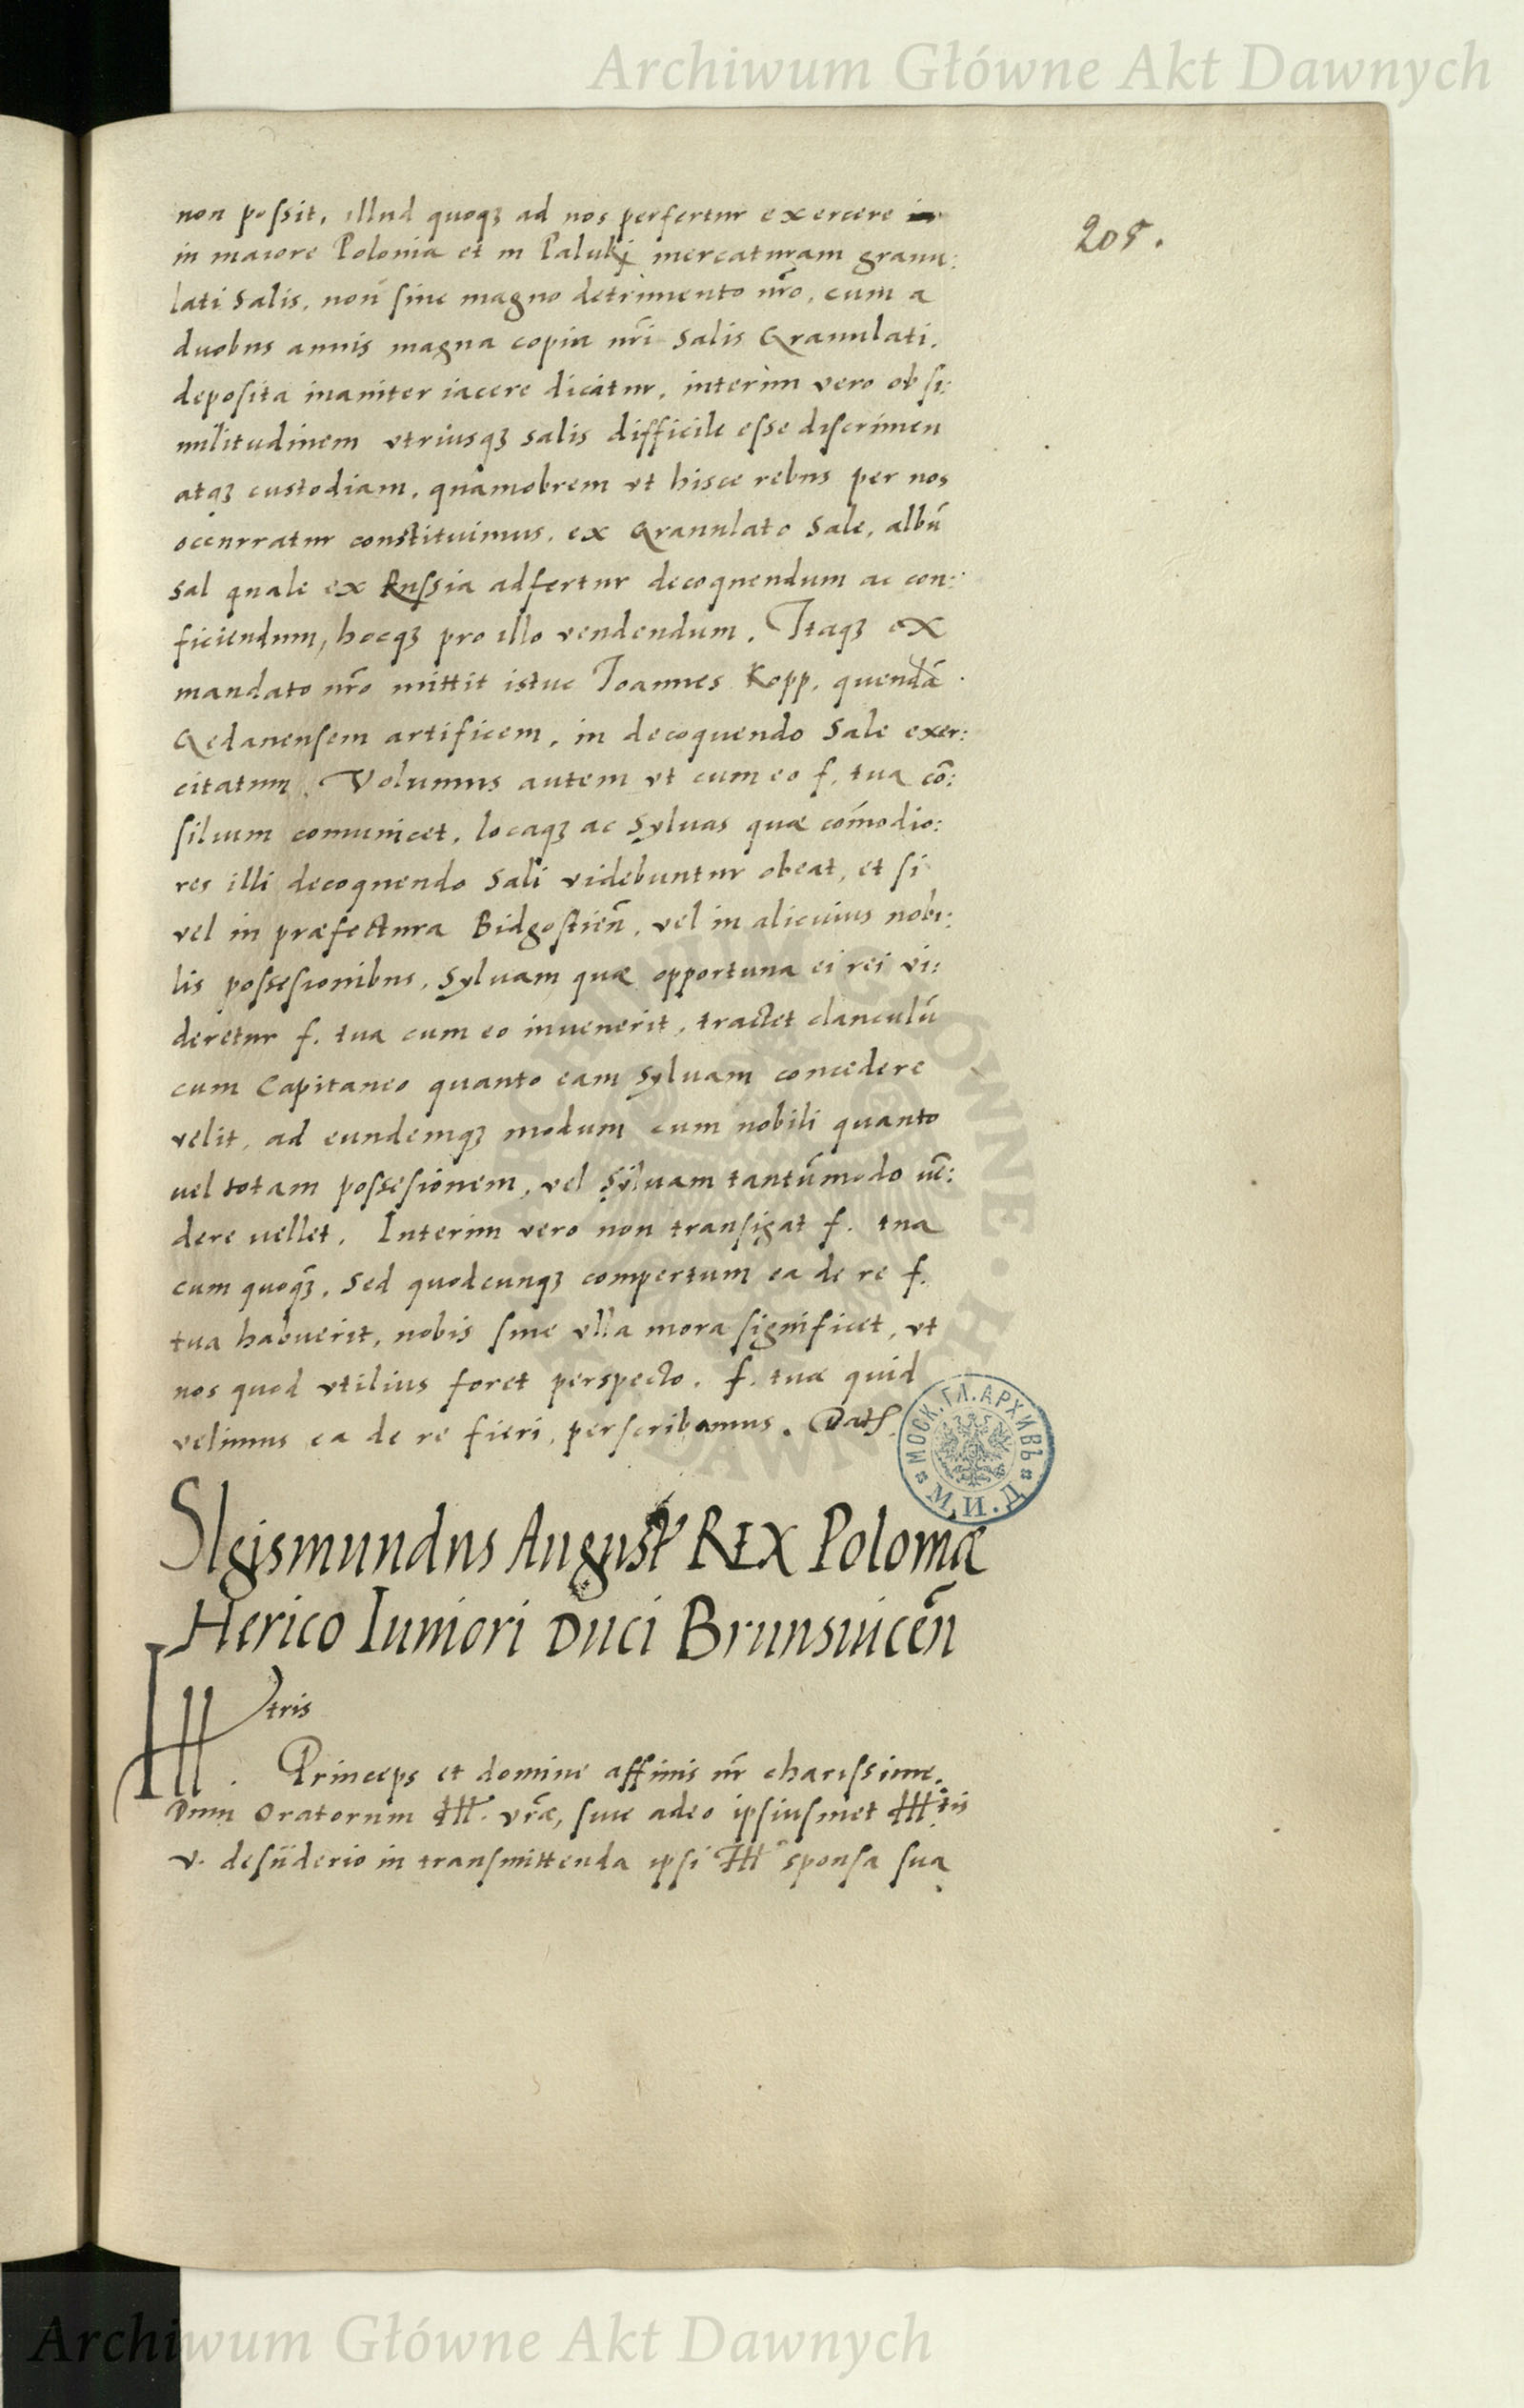 Archiwum Główne Akt Dawnych
205.
non possit, illud quoqꝫ ad nos perfertur exercere
in maiore Polonia et in Paluki mercaturam granu:
lati salis, non sine magno detrimento nr̃o, cum a
duobus annis magna copia nr̃i Salis Granulati,
deposita inaniter iacere dicatur, interim vero ob si:
militudinem vtriusqꝫ salis difficile esse discrimen
atqꝫ custodiam, quamobrem vt hisce rebus per nos
occurratur constituimus, ex Granulato Sale, albũ
sal quale ex Russia adfertur decoquendum ac con:
ficiendum, hocqꝫ pro illo vendendum. Itaqꝫ ex
mandato nr̃o mittit istuc Joannes Kopp, quendã
Gedanensem artificem, in decoquendo Sale exer:
citatum. Volumus autem vt cum eo f. tua cõ:
silium comunicet, locaqꝫ ac Syluas quæ cõmodio:
res illi decoquendo Sali videbuntur obeat, et si
vel in præfectura Bidgostieñ, vel in alicuius nobi:
lis possesionibus, Syluam quæ opportuna ei rei vi:
deretur f. tua cum eo inuenerit, tractet clanculũ
cum Capitaneo quanto eam Syluam concedere
velit, ad eundemqꝫ modum cum nobili quanto
uel totam possesionem, vel Syluam tantũmodo uẽ:
dere uellet. Interim vero non transigat f. tua
cum quoqꝫ, sed quodcunqꝫ compertum ea de re f.
tua habuerit, nobis sine vlla mora significet, vt
nos quod vtilius foret perspecto, f. tuæ quid
velimus ea de re fieri, perscribamus. Dat.
SIgismundus August' REX Poloniæ
Herico Iuniori Duci Brunsuiceñ
Ill tris
Princeps et domine affinis nr̃ charissime.
Dum Oratorum Ill. vr̃æ, siue adeo ipsiusmet Ill.tis
v. desiiderio in transmittenda ipsi Ill sponsa sua
МОСК. ГЛ. АРХИВЪ
М. И. Д.
ARCHIWUM GŁÓWNE AKT DAWNYCH
Archiwum Główne Akt Dawnych